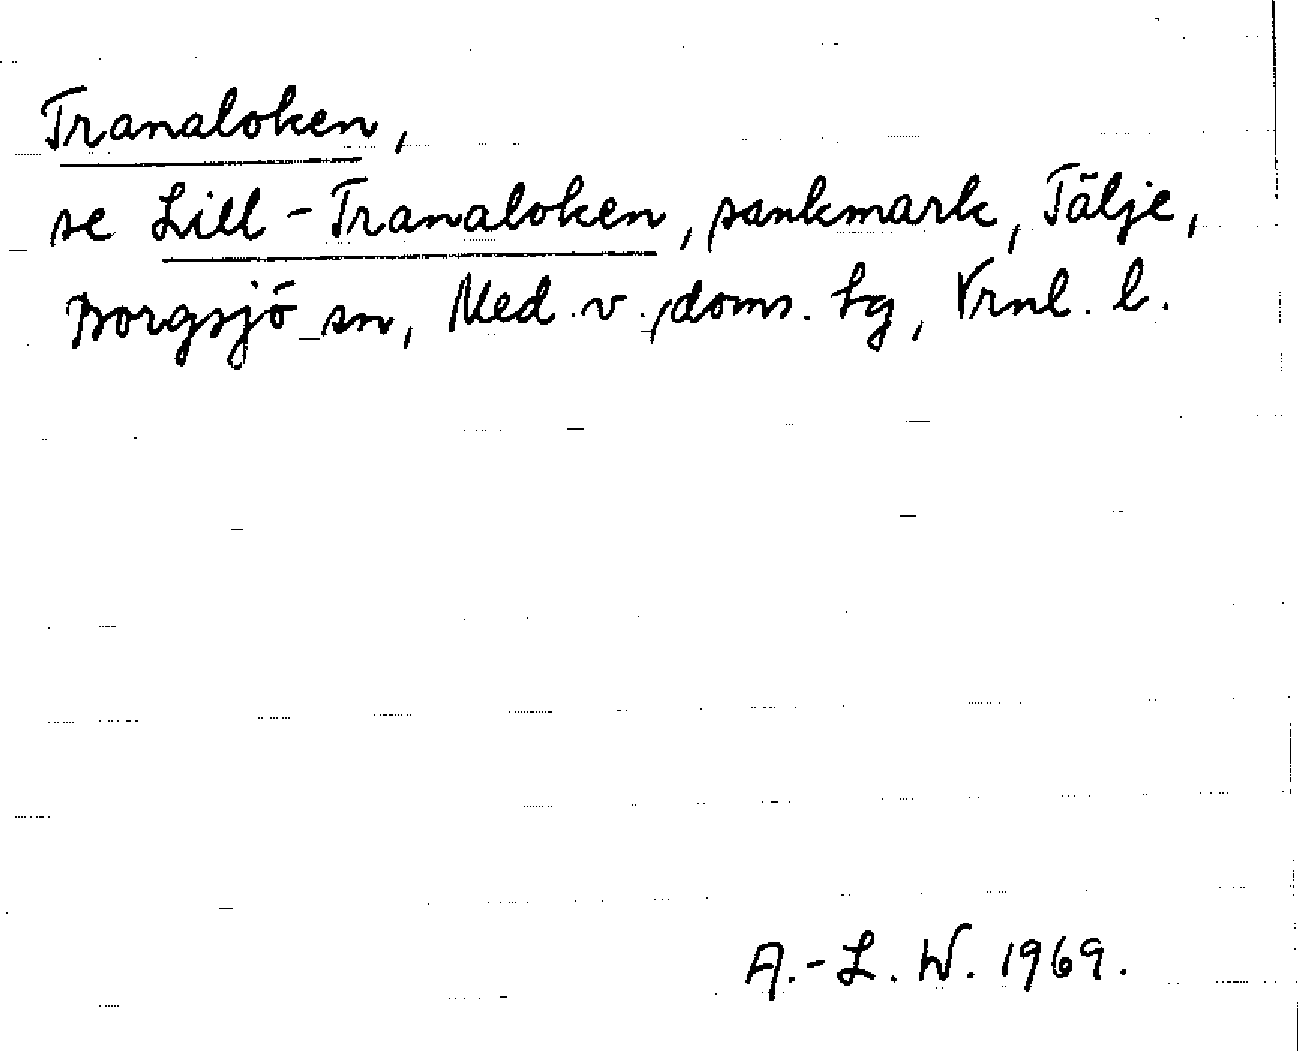 Tranaloken,
se Lill-Tranaloken, sankmark, Tälje,
Borgsjö sn, Med. v., doms. tg, Vrnl. l.
A.-L. W. 1969.